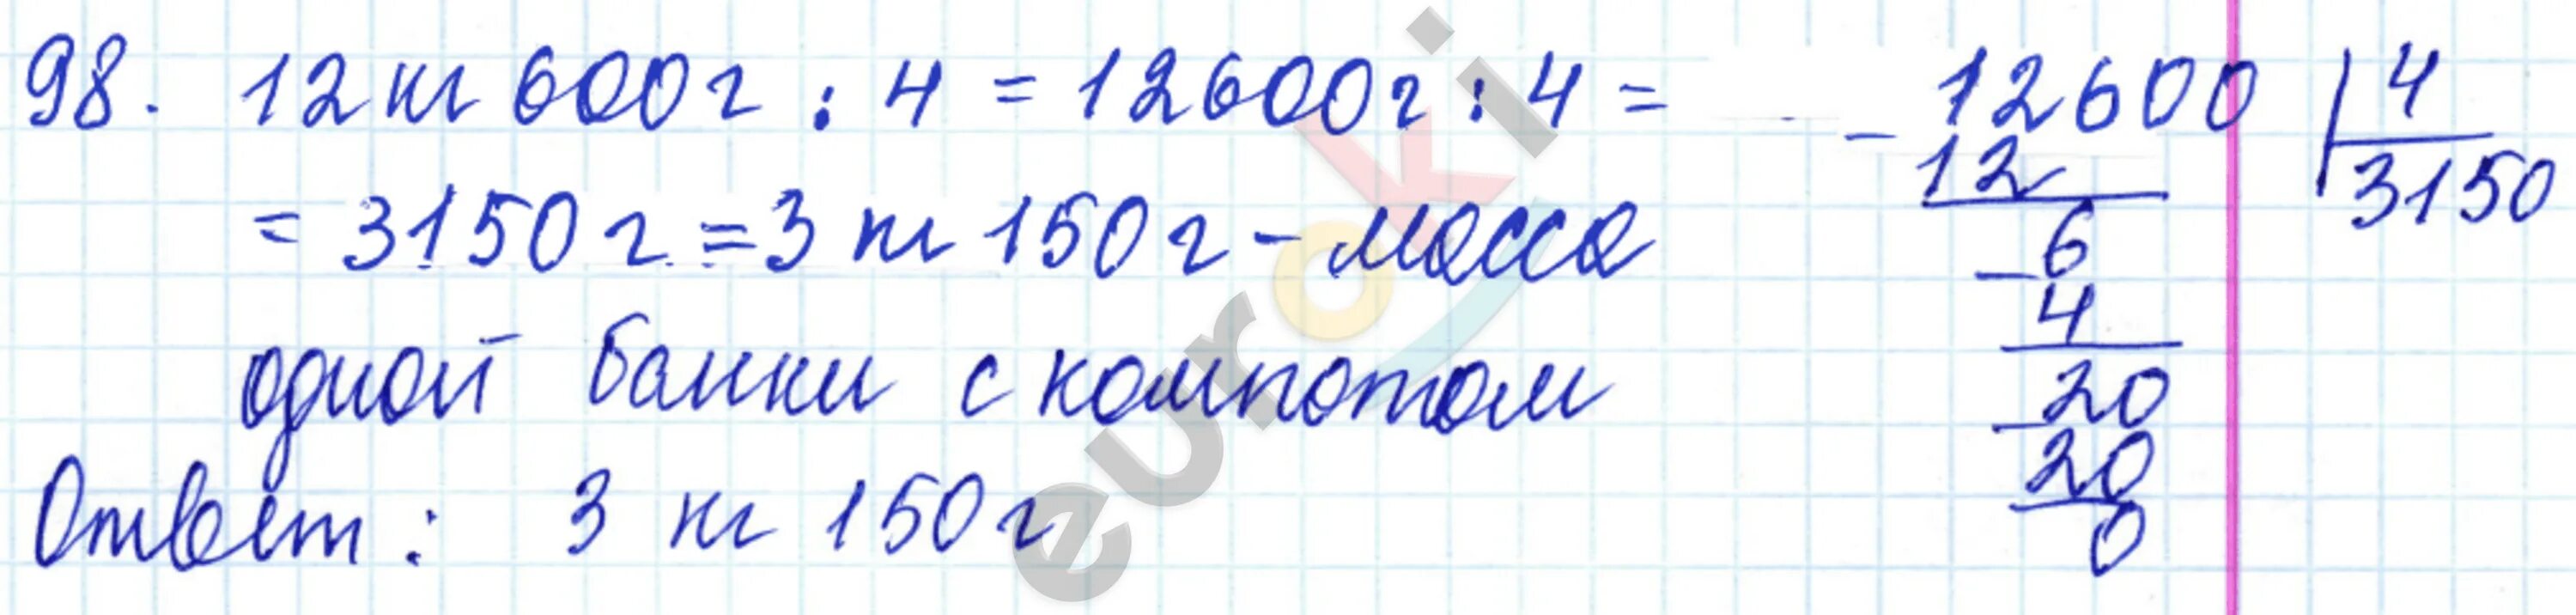 98. 12 кг 600 г : 4 = 12600 г : 4 =
= 3150 г = 3 кг 150 г - масса
одной банки с компотом
Ответ: 3 кг 150 г
- 12600 | 4
12 3150
- 6
4
- 20
20
0
euroki